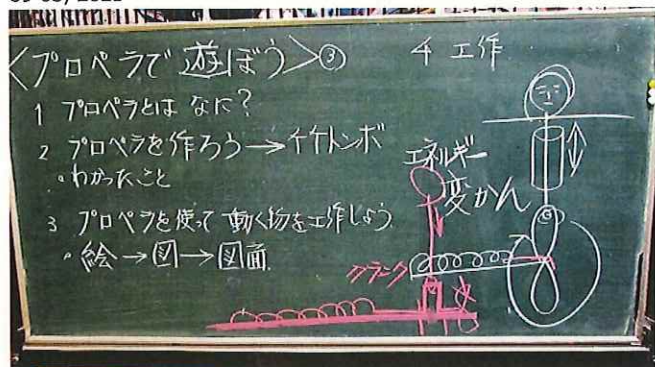 <プロペラで遊ぼう>③
1 プロペラとは なに?
2 プロペラを作ろう→イケトンボ
・わかったこと
3 プロペラを使って動く物を工作しよう
・絵→図→図面
4 工作
エネルギー
変かん
クランク